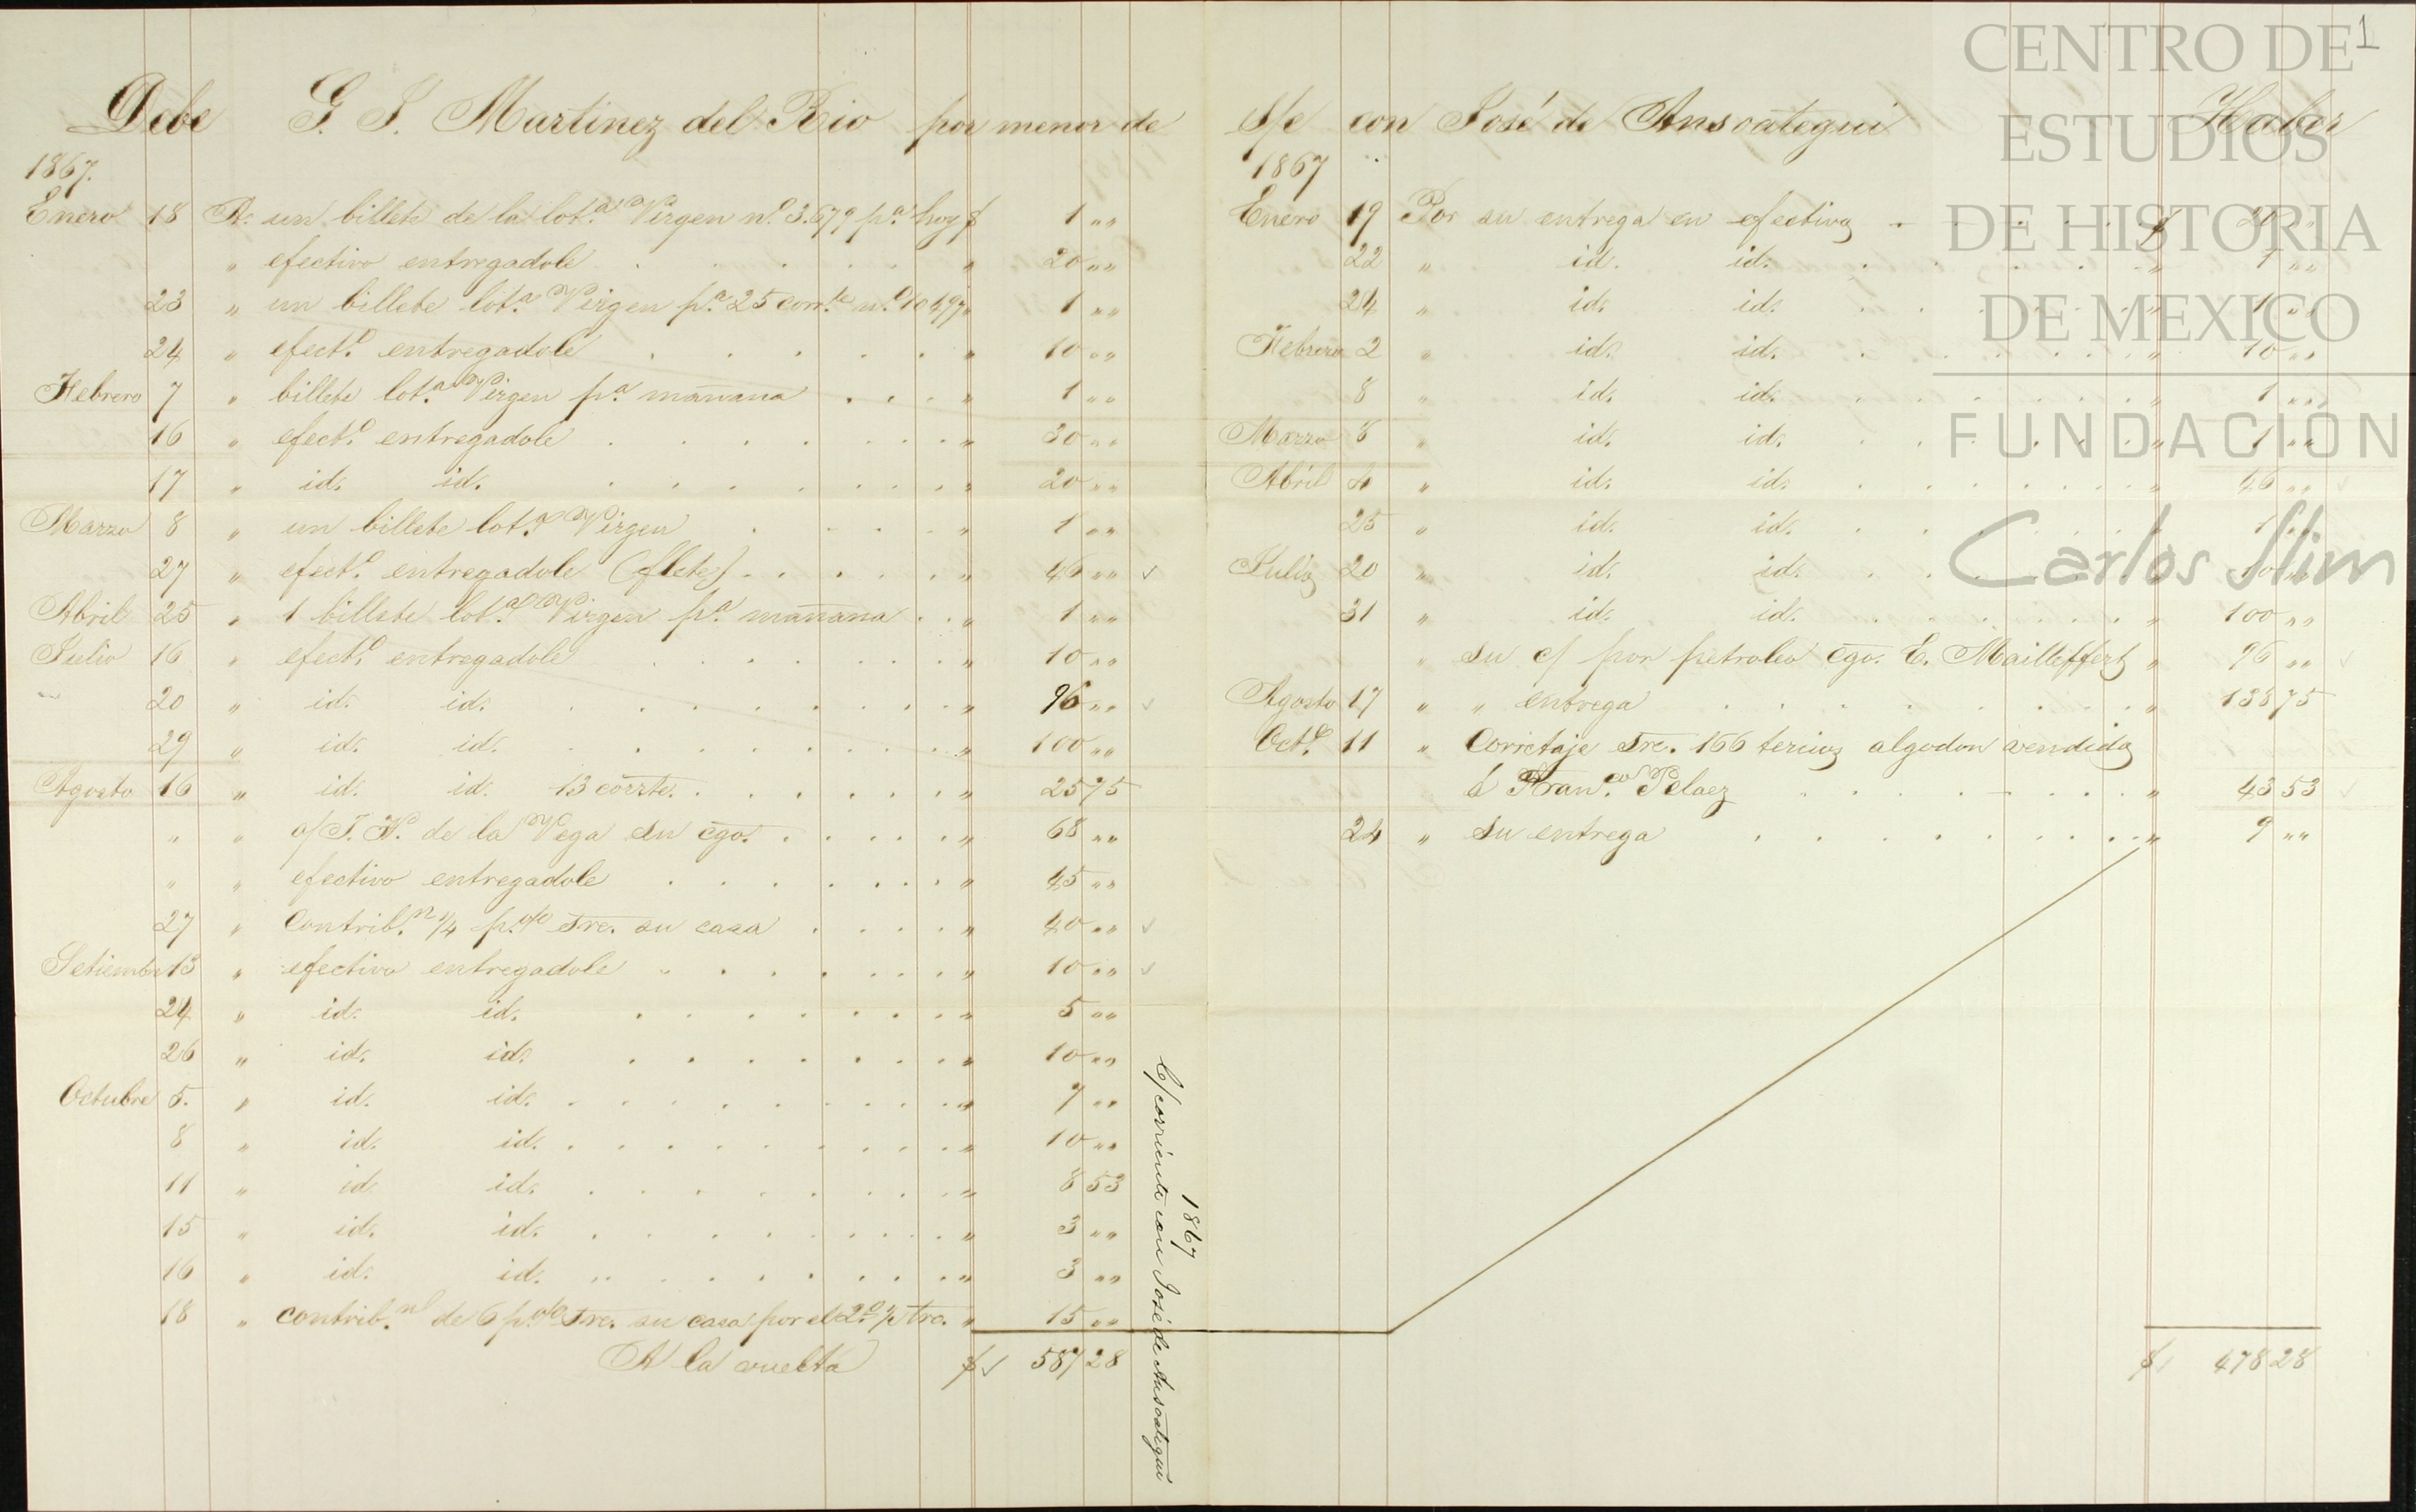 Debe G. S. Martinez del Rio por menor de
1867.
Enero 18 A: un billete de la lot.ª Virgen n.º 3.679 p.ª hoy $ 1 „„
„ efectivo entregadole . . . . . . „ 20 „„
23 „ un billete lot.ª Virgen p.ª 25 corr.te n.º 10497 „ 1 „„
24 „ efect.º entregadole . . . . . . „ 10 „„
Febrero 7 „ billete lot.ª Virgen p.ª mañana . . . „ 1 „„
16 „ efect.º entregadole . . . . . . . „ 30 „„
17 „ id. id. . . . . . . . „ 20 „„
Marzo 8 „ un billete lot.ª Virgen . . . . „ 1 „„
27 „ efect.º entregadole (flete) . . . . . „ 46 „„ ✓
Abril 25 „ 1 billete lot.ª Virgen p.ª mañana . . „ 1 „„
Julio 16 „ efect.º entregadole . . . . . . „ 10 „„
20 „ id. id. . . . . . . . „ 96 „„ ✓
29 „ id. id. . . . . . . . „ 100 „„
Agosto 16 „ id. id. 13 corrte. . . . . . „ 25 75
„ „ a/ J. N. de la Vega su cgo. . . . . . „ 68 „„
„ „ efectivo entregadole . . . . . . „ 45 „„
27 „ Contrib.n ¼ p.% sre. su casa . . . . „ 40 „„ ✓
Setiembre 13 „ efectivo entregadole . . . . . . „ 10 „„ ✓
24 „ id. id. . . . . . . . „ 5 „„
26 „ id. id. . . . . . . . „ 10 „„
Octubre 5. „ id. id. . . . . . . . „ 7 „„
8 „ id. id. . . . . . . . „ 10 „„
11 „ id. id. . . . . . . . „ 8 53
15 „ id. id. . . . . . . . „ 3 „„
16 „ id. id. . . . . . . . „ 3 „„
18 „ contrib.n de 6 p.% sre. su casa por el 2.º ½ tre. „ 15 „„
A la vuelta $ ✓ 587 28
1867
C/ corriente con José de Ansoategui
S/c con José de Ansoategui Haber
1867
Enero 19 Por su entrega en efectivo . . . . $ 20 „„
22 „ id. id. . . . . „ 1 „„
24 „ id. id. . . . . „ 1 „„
Febrero 2 „ id. id. . . . . „ 10 „„
8 „ id. id. . . . . „ 1 „„
Marzo 8 „ id. id. . . . . „ 1 „„
Abril 4 „ id. id. . . . . „ 46 „„ ✓
25 „ id. id. . . . . „ 1 „„
Julio 20 „ id. id. . . . . „ 10 „„ ✓
31 „ id. id. . . . . „ 100 „„
„ su c/ por petroleo cgo. E. Mailleffert „ 96 „„ ✓
Agosto 17 „ „ entrega . . . . . . . „ 138 75
Oct.e 11 „ Corretaje sre. 166 tercios algodon vendido
á Fran.co Pelaez . . . . . . „ 43 53 ✓
24 „ su entrega . . . . . . . „ 9 „„
$ 478 28
1
CENTRO DE
ESTUDIOS
DE HISTORIA
DE MEXICO
FUNDACIÓN
Carlos Slim